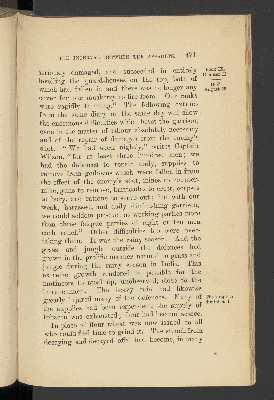 THE INTERVAL BETWEEN THE ASSAULTS. 471
seriously damaged, and succeeded in entirely
levelling the guard-houses on the top, both of
which had fallen in, and there was no longer any
cover for our musketry to fire from. Our ranks
were rapidly thinning." The following extract
from the same diary on the same day will show
the enormous difficulties which beset the garrison,
even in the matter of labour absolutely necessary
and of the repair of damages from the enemy's
shot. "We had were nightly," writes Captain
Wilson, "for at least three hundred men; we
had the defences to repair daily, supplies to
remove from godowns which were fallen in from
the effect of the enemy's shot, mines to counter-
mine, guns to remove, barricades to erect, corpses
to bury, and rations to serve out; but with our
weak, harassed, and daily diminishing garrison,
we could seldom produce as working parties more
than three fatigue parties of eight or ten men
each relief." Other difficulties too were over-
taking them. It was the rainy season. And the
grass and jungle outside the defences had
grown in the prolific manner normal to grass and
jungle during the rainy season in India. This
extreme growth rendered it possible for the
mutineers to steal up, unobserved, close to the
intrenchment. The heavy rain had likewise
greatly injured many of the defences. Many of
the supplies had been expended; the supply of
tobacco was exhausted; flour had become scarce.
In place of flour wheat was now issued to all
who could find time to grind it. The stench from
decaying and decayed offal had become, in many
Book IX.
1857
August